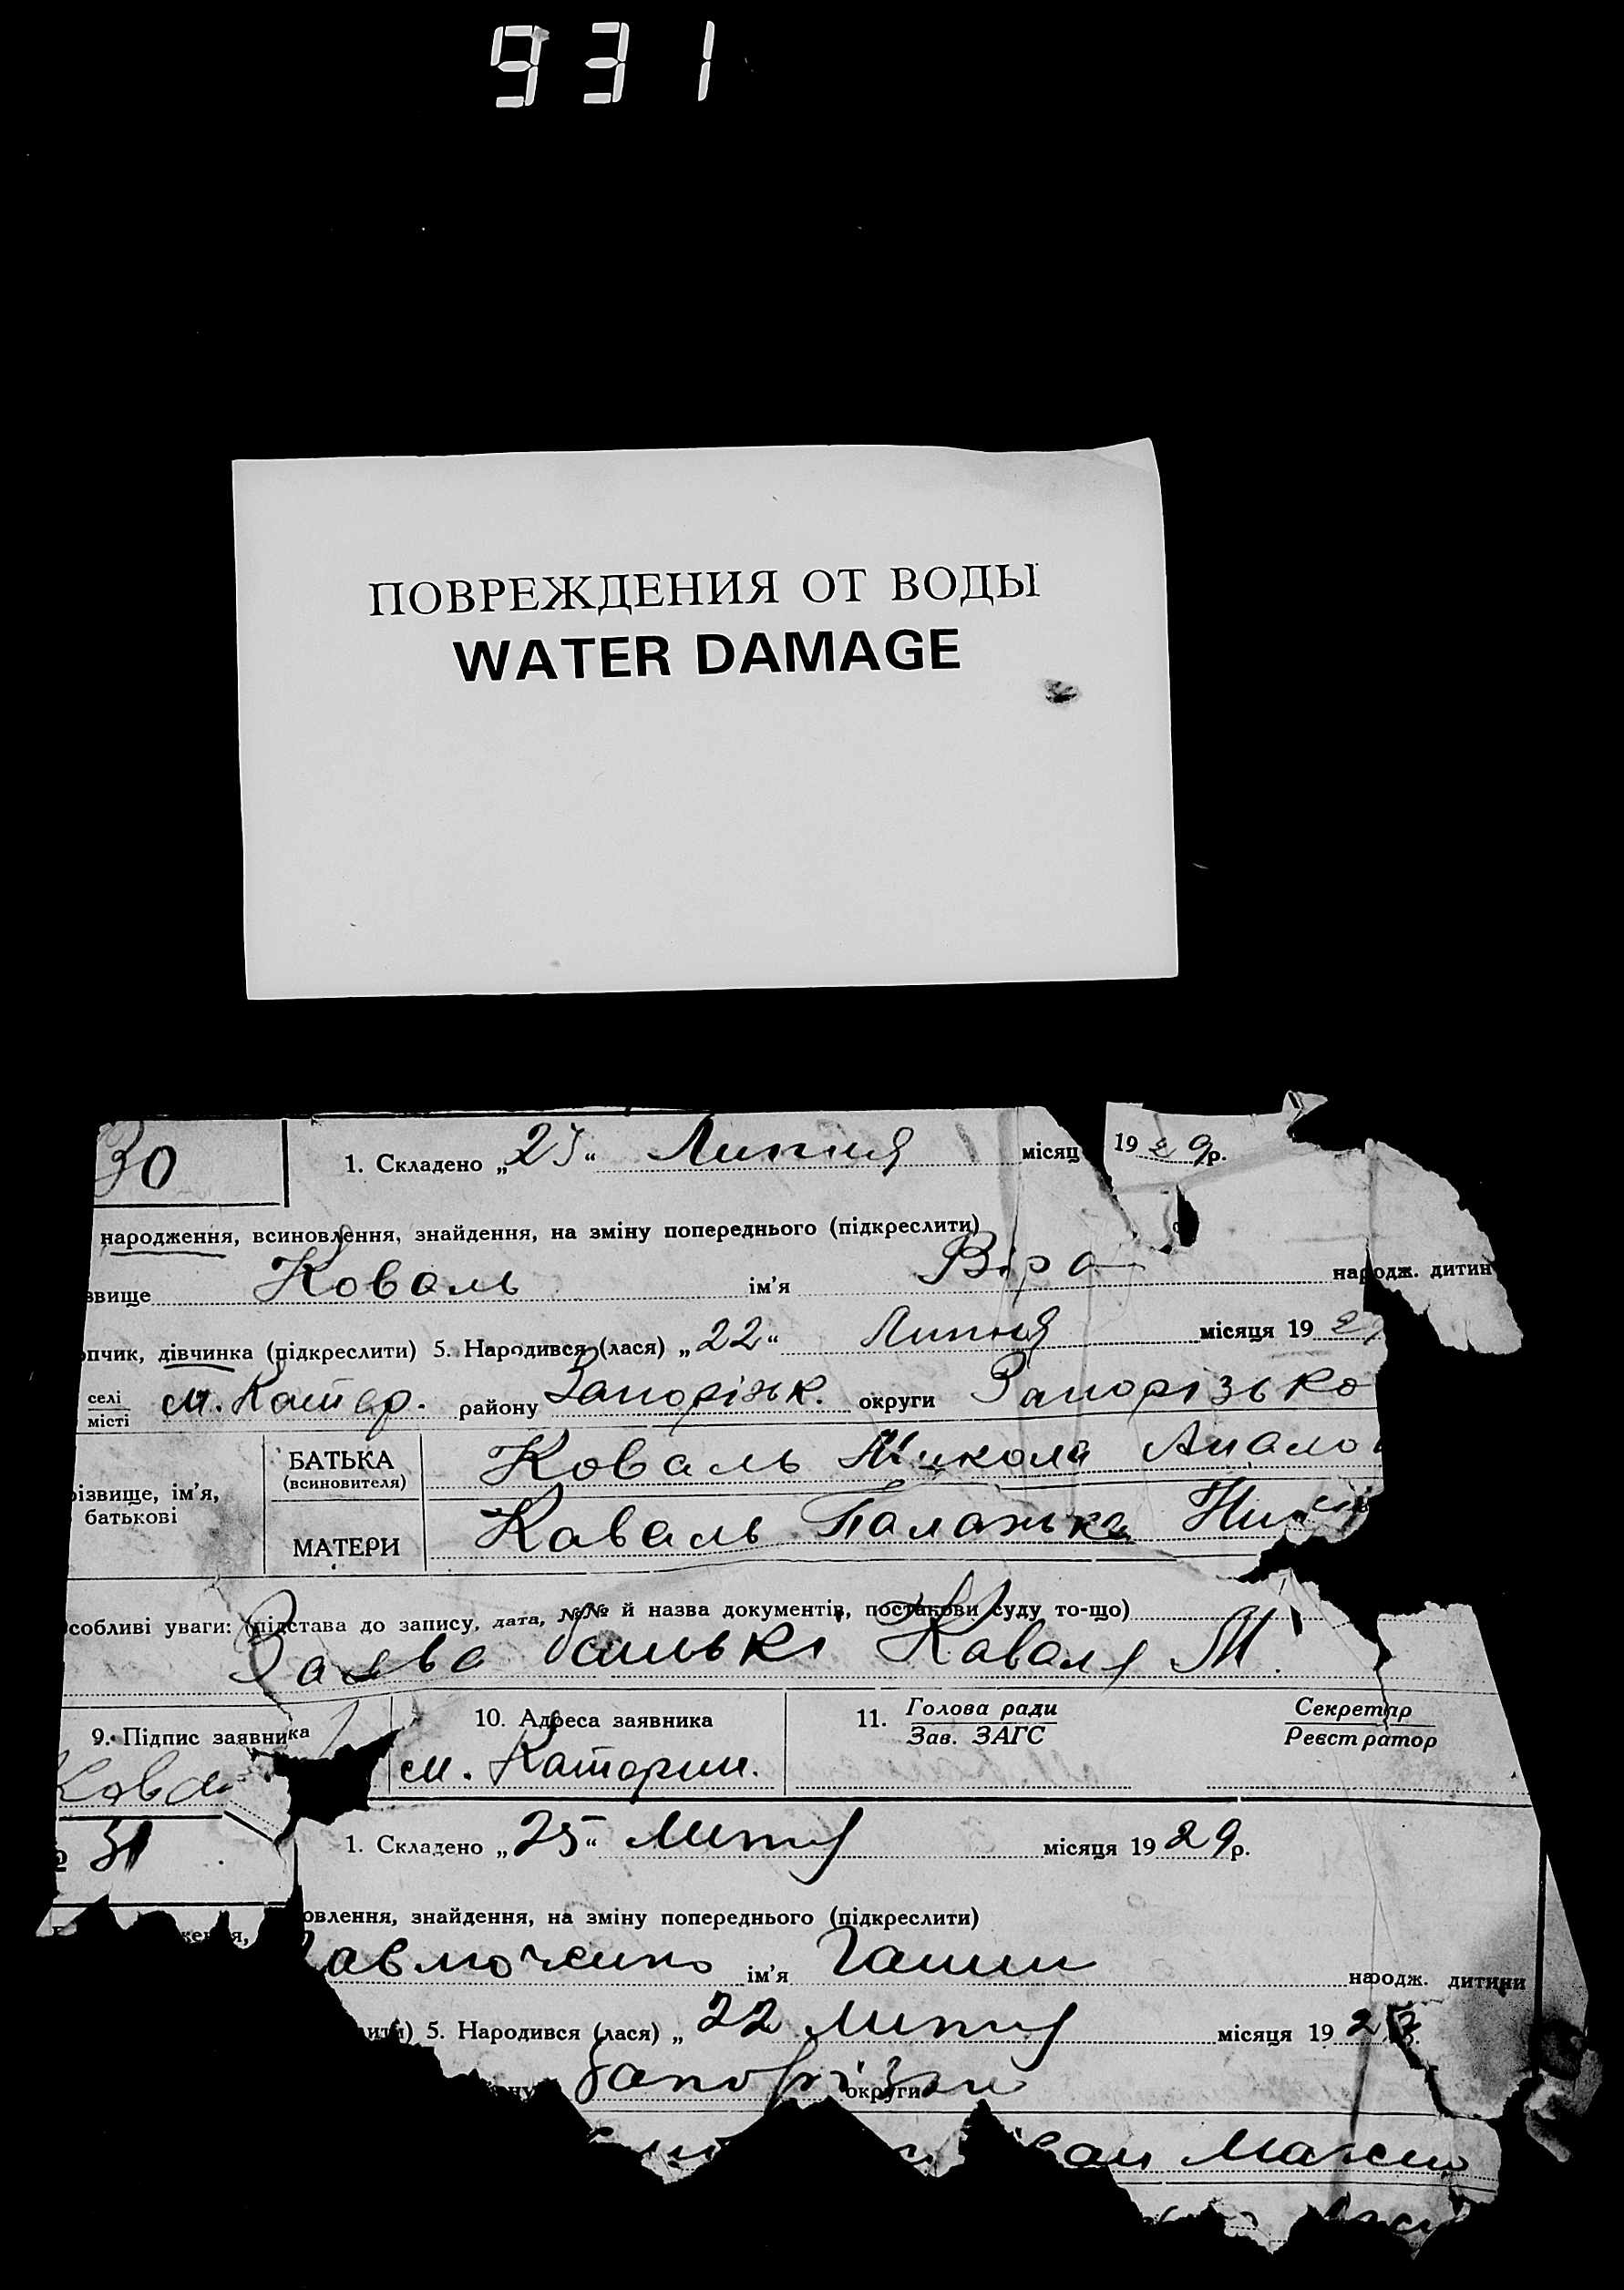 931
ПОВРЕЖДЕНИЯ ОТ ВОДЫ
WATER DAMAGE
30 1. Складено „25“ Липня місяц 1929р.
народження, всиновлення, знайдення, на зміну попереднього (підкреслити)
звище Коваль ім'я Віра народж. дитин
опчик, дівчинка (підкреслити) 5. Народився (лася) „22“ Липня місяця 19 2
селі
місті м. Катер. району Запорізьк. округи Запорізько
різвище, ім'я, батькові
БАТЬКА (всиновителя) Коваль Микола
МАТЕРИ Коваль Палажка
собливі уваги: (підстава до запису, дата, №№ й назва документів, постанови суду то-що)
Заява батька Коваля М.
9. Підпис заявника 10. Адреса заявника 11. Голова ради Секретар
Зав. ЗАГС Реєстратор
м. Катерин.
31 1. Складено „25“ Липня місяця 1929р.
овлення, знайдення, на зміну попереднього (підкреслити)
ім'я народж. дитини
ити) 5. Народився (лася) „22 Липня місяця 19 2
округи